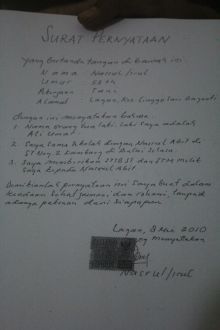 SURAT PERNYATAAN
yang bertanda tangan di bawah ini
Nama Nasrul/irul
Umur 58 th
Pekerjaan Tani
Alamat Lagan, Kec Linggo Sari Baganti
dengan ini menyatakan bahwa:
1. Nama orang tua laki-laki saya adalah
Ali Umar
2. Saya sama sekolah dengan Nasrul Abit di
ST Neg. 2 Lambung di Balai Selasa.
3. Saya memberikan STTB ST dan STM milik
saya kepada Nasrul Abit
Demikianlah pernyataan ini saya buat dalam
keadaan sehat jasmani dan rohani, tanpa
adanya paksaan dari siapapun
Lagan, 8 Mei 2010
yang menyatakan
Nasrul/irul